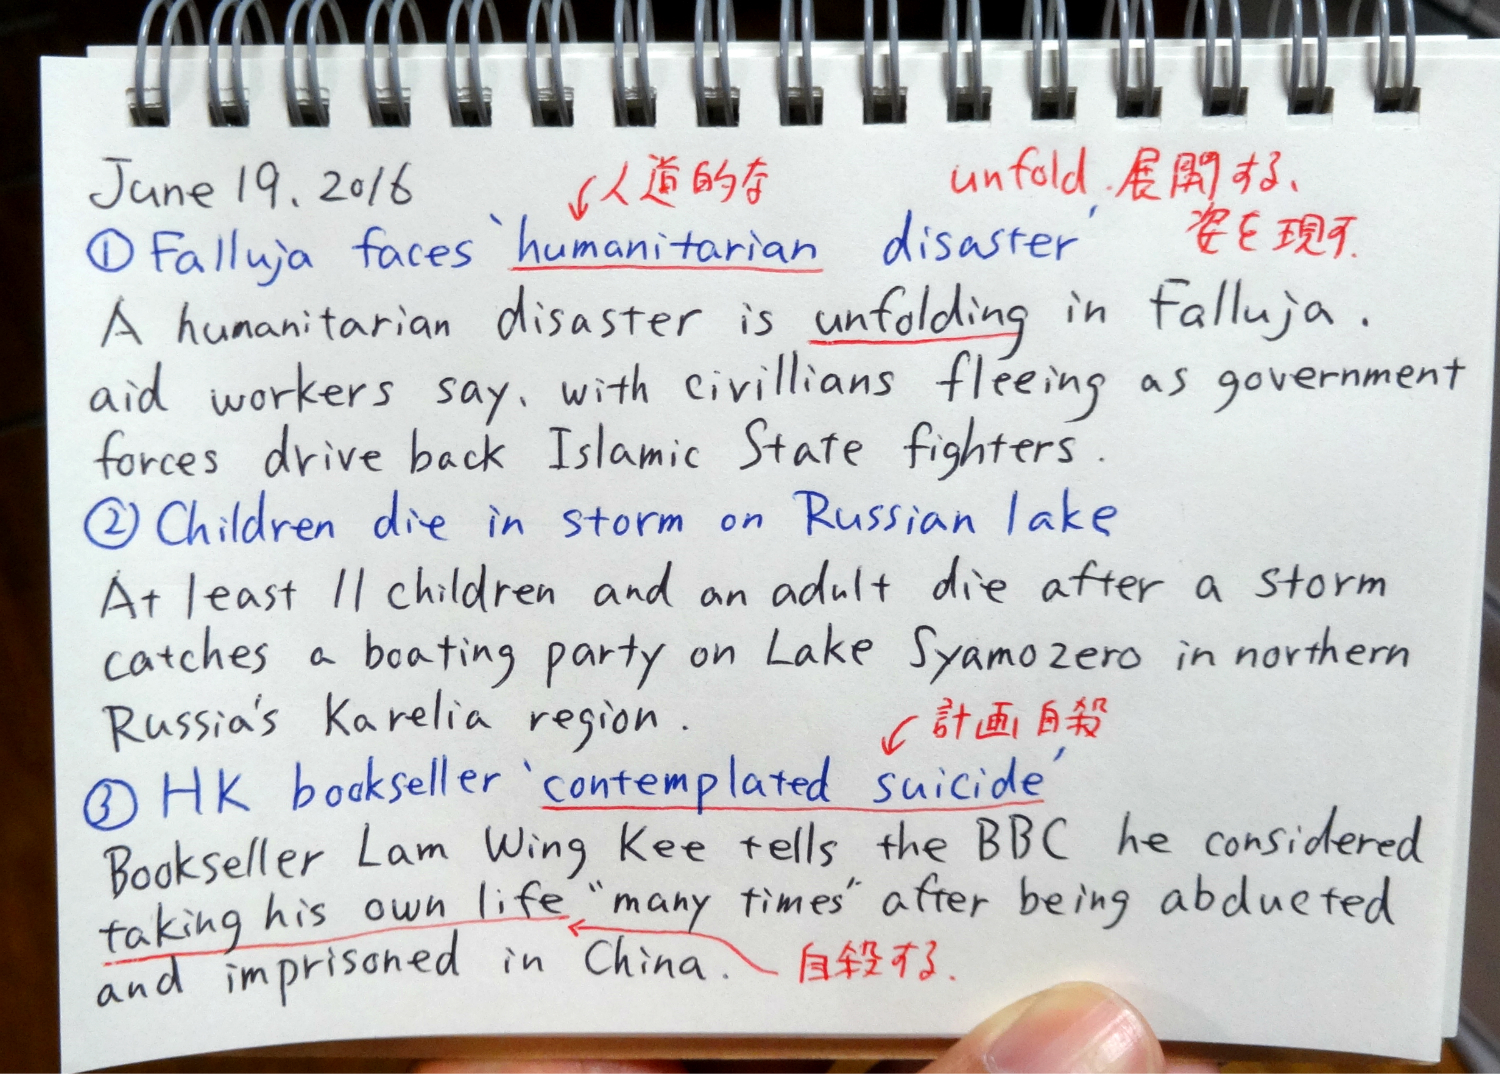 June 19, 2016
人道的な
unfold. 展開する、
姿を現す.
① Falluja faces 'humanitarian disaster'
A humanitarian disaster is unfolding in Falluja.
aid workers say, with civillians fleeing as government
forces drive back Islamic State fighters.
② Children die in storm on Russian lake
At least 11 children and an adult die after a storm
catches a boating party on Lake Syamozero in northern
Russia's Karelia region.
計画自殺
③ HK bookseller 'contemplated suicide'
Bookseller Lam Wing Kee tells the BBC he considered
taking his own life "many times" after being abducted
and imprisoned in China.
自殺する.